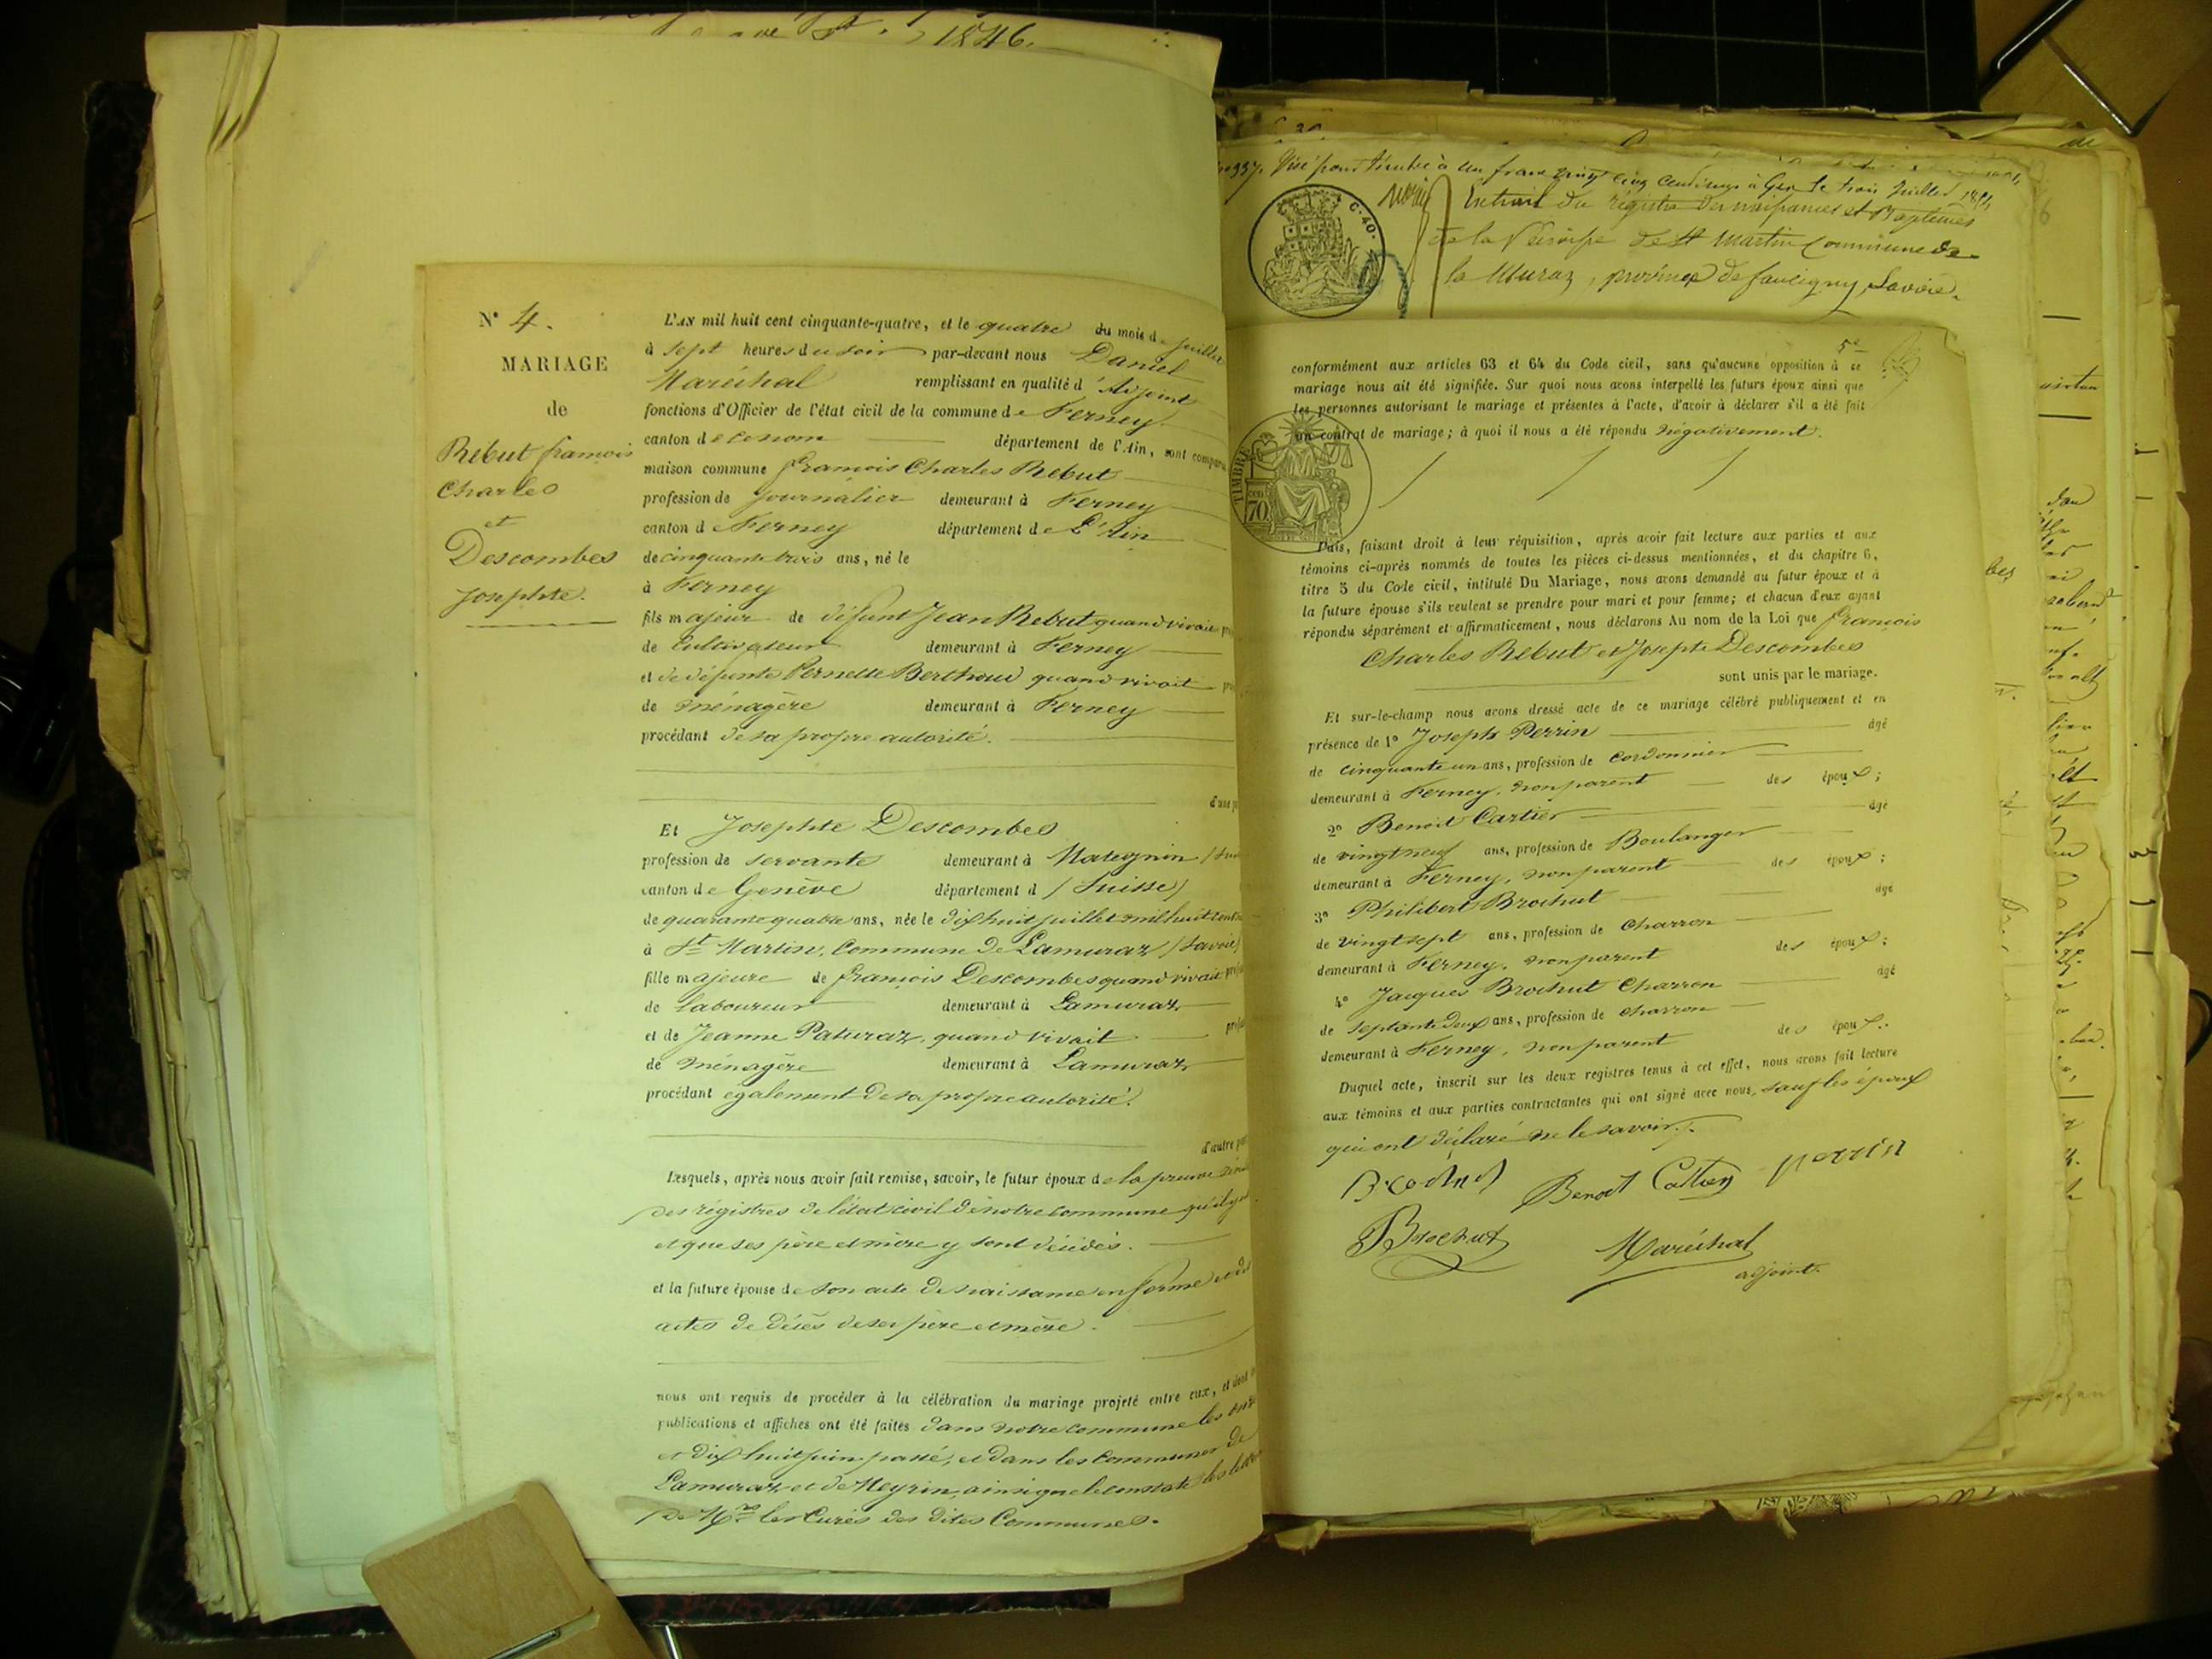 1846.
N° 4.
MARIAGE
de
Rebut françois
Charles
et
Descombes
Josephte.
L'AN mil huit cent cinquante-quatre, et le quatre du mois de juillet
à sept heures du soir par-devant nous Daniel
Maréchal remplissant en qualité d'Adjoint
fonctions d'Officier de l'état civil de la commune de Ferney
canton de ce nom département de l'Ain, sont comparu
maison commune françois Charles Rebut
profession de journalier demeurant à Ferney
canton de Ferney département de L'Ain
de cinquante trois ans, né le
à Ferney
fils majeur de défunt Jean Rebut quand vivait
de Cultivateur demeurant à Ferney
et de défunte Pernette Berthoud quand vivait
de ménagère demeurant à Ferney
procédant de sa propre autorité.
d'une
Et Josephte Descombes
profession de servante demeurant à Mategnin
canton de Genève département d (Suisse)
de quarante quatre ans, née le dix huit juillet mil huit cent
à St Martin, Commune de Lamuraz (Savoie)
fille majeure de françois Descombes quand vivait
de laboureur demeurant à Lamuraz
et de Jeanne Paturaz, quand vivait
de ménagère demeurant à Lamuraz
procédant également de sa propre autorité.
d'autre
Lesquels, après nous avoir fait remise, savoir, le futur époux de la preuve
des régistres de l'état civil de notre commune qu'il y
et que ses père et mère y sont décédés.
et la future épouse de son acte de naissance en forme et des
actes de décès de ses père et mère.
nous ont requis de procéder à la célébration du mariage projeté entre eux, et dont
publications et affiches ont été faites dans notre commune les onze
et dix huit juin passé, et dans les Communes de
Lamuraz et de Meyrin, ainsi que le constate les lettres
de Mrs les Curés des dites Communes.
337. Visé pour timbre à un franc vingt cinq centimes à Gex le trois Juillet 1854
C. 40.
Extrait du régistre des naissances et Baptêmes
de la Paroisse de St Martin Commune de
la Muraz, province de faucigny, Savoie.
5e
conformément aux articles 63 et 64 du Code civil, sans qu'aucune opposition à se
mariage nous ait été signifiée. Sur quoi nous avons interpellé les futurs époux ainsi que
les personnes autorisant le mariage et présentes à l'acte, d'avoir à déclarer s'il a été fait
un contrat de mariage; à quoi il nous a été répondu négativement.
TIMBRE
70
Puis, faisant droit à leur réquisition, après avoir fait lecture aux parties et aux
témoins ci-après nommés de toutes les pièces ci-dessus mentionnées, et du chapitre 6,
titre 5 du Code civil, intitulé Du Mariage, nous avons demandé au futur époux et à
la future épouse s'ils veulent se prendre pour mari et pour femme; et chacun d'eux ayant
répondu séparément et affirmativement, nous déclarons Au nom de la Loi que françois
Charles Rebut et Josephte Descombes
sont unis par le mariage.
Et sur-le-champ nous avons dressé acte de ce mariage célébré publiquement et en
présence de 1° Joseph Perrin âgé
de cinquante un ans, profession de Cordonnier
demeurant à Ferney, non parent des époux;
2° Benoit Cartier âgé
de vingt neuf ans, profession de Boulanger
demeurant à Ferney, non parent des époux;
3° Philibert Brochut âgé
de vingt sept ans, profession de Charron
demeurant à Ferney, non parent des époux;
4° Jacques Brochut Charron âgé
de septante deux ans, profession de charron
demeurant à Ferney, non parent des époux.
Duquel acte, inscrit sur les deux registres tenus à cet effet, nous avons fait lecture
aux témoins et aux parties contractantes qui ont signé avec nous, sauf les époux
qui ont déclaré ne le savoir.
Brochut Benoit Cartier perrin
Brochut Maréchal
adjoint.